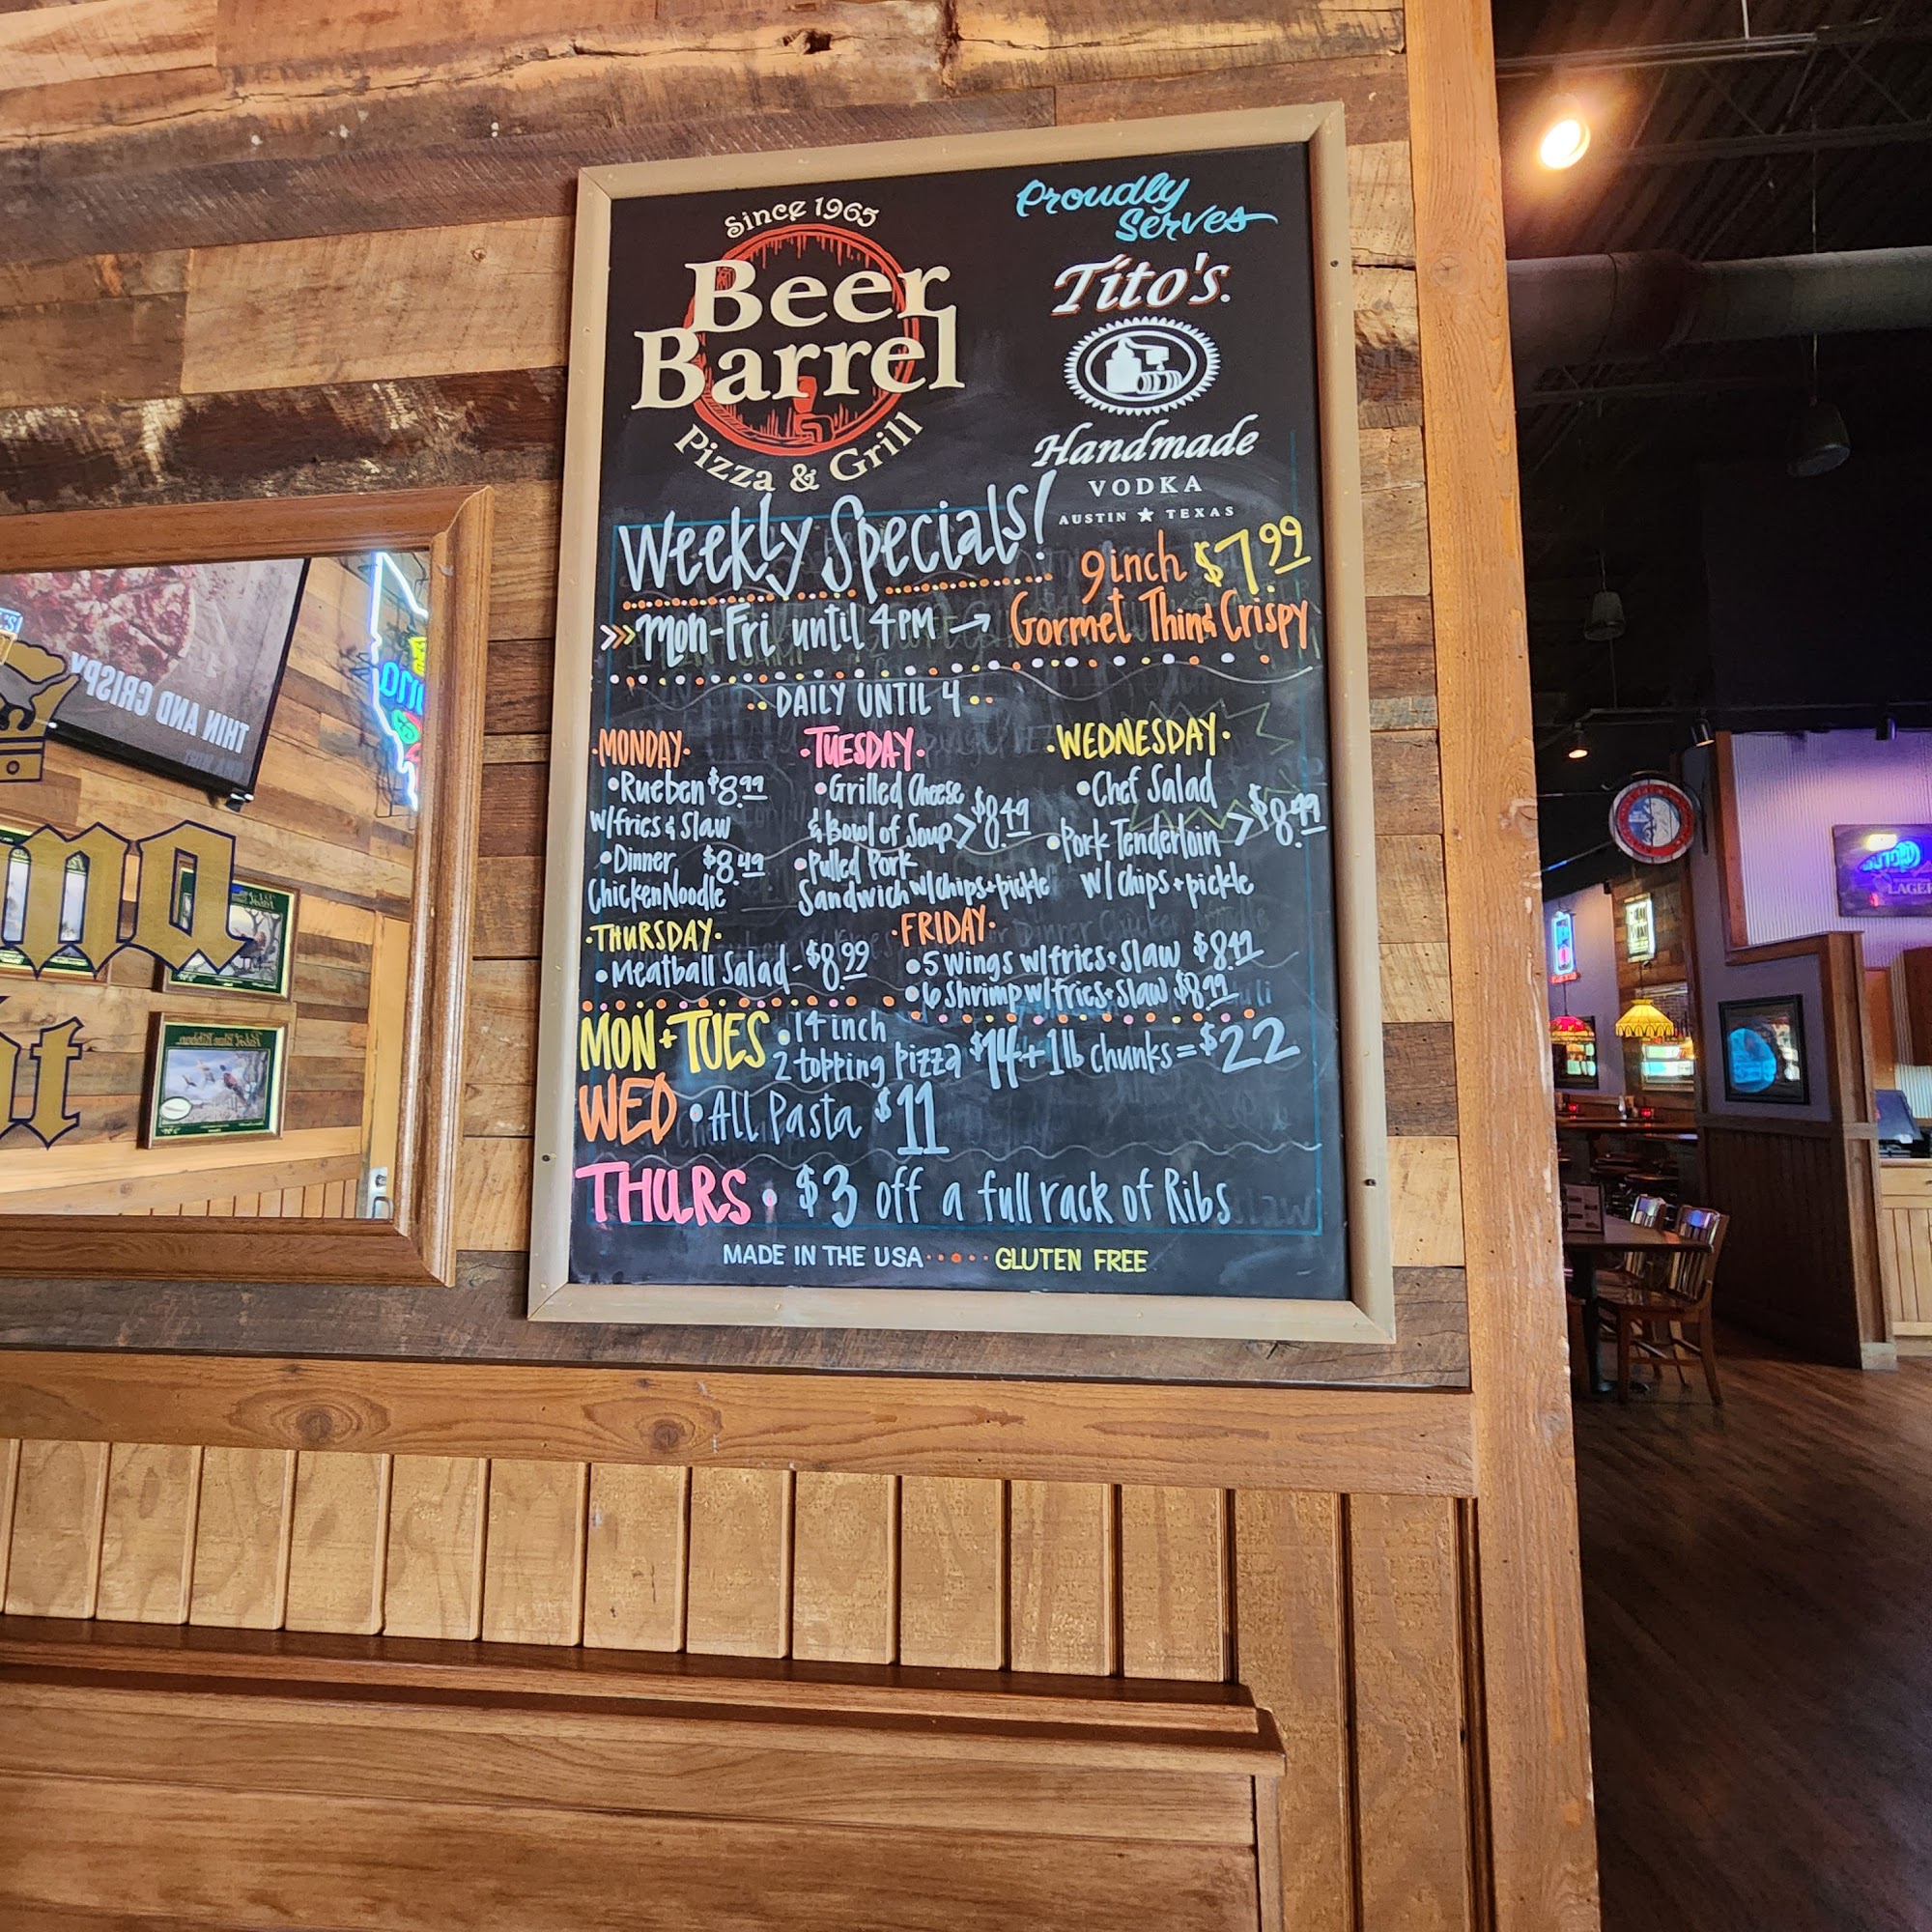 Since 1965
Beer
Barrel
Pizza & Grill
Proudly
Serves
Tito's.
Handmade
VODKA
AUSTIN ★ TEXAS
Weekly Specials!
9inch $7.99
>>> Mon-Fri until 4PM → Gormet Thin & Crispy
DAILY UNTIL 4
•MONDAY•
•Rueben $8.99
w/fries & Slaw
•Dinner $8.49
Chicken Noodle
•TUESDAY•
•Grilled Cheese
& Bowl of Soup > $8.49
•Pulled Pork
Sandwich w/chips+pickle
•WEDNESDAY•
•Chef Salad
•Pork Tenderloin > $8.49
w/ chips + pickle
•THURSDAY•
•Meatball Salad - $8.99
•FRIDAY•
•5 Wings w/fries+slaw $8.49
•6 Shrimp w/fries+slaw $8.99
MON + TUES •14 inch
2 topping pizza $14 + 1lb chunks = $22
WED •All Pasta $11
THURS • $3 off a full rack of Ribs
MADE IN THE USA • • • • • GLUTEN FREE
THIN AND CRISPY
Pabst Blue Ribbon
LAGER